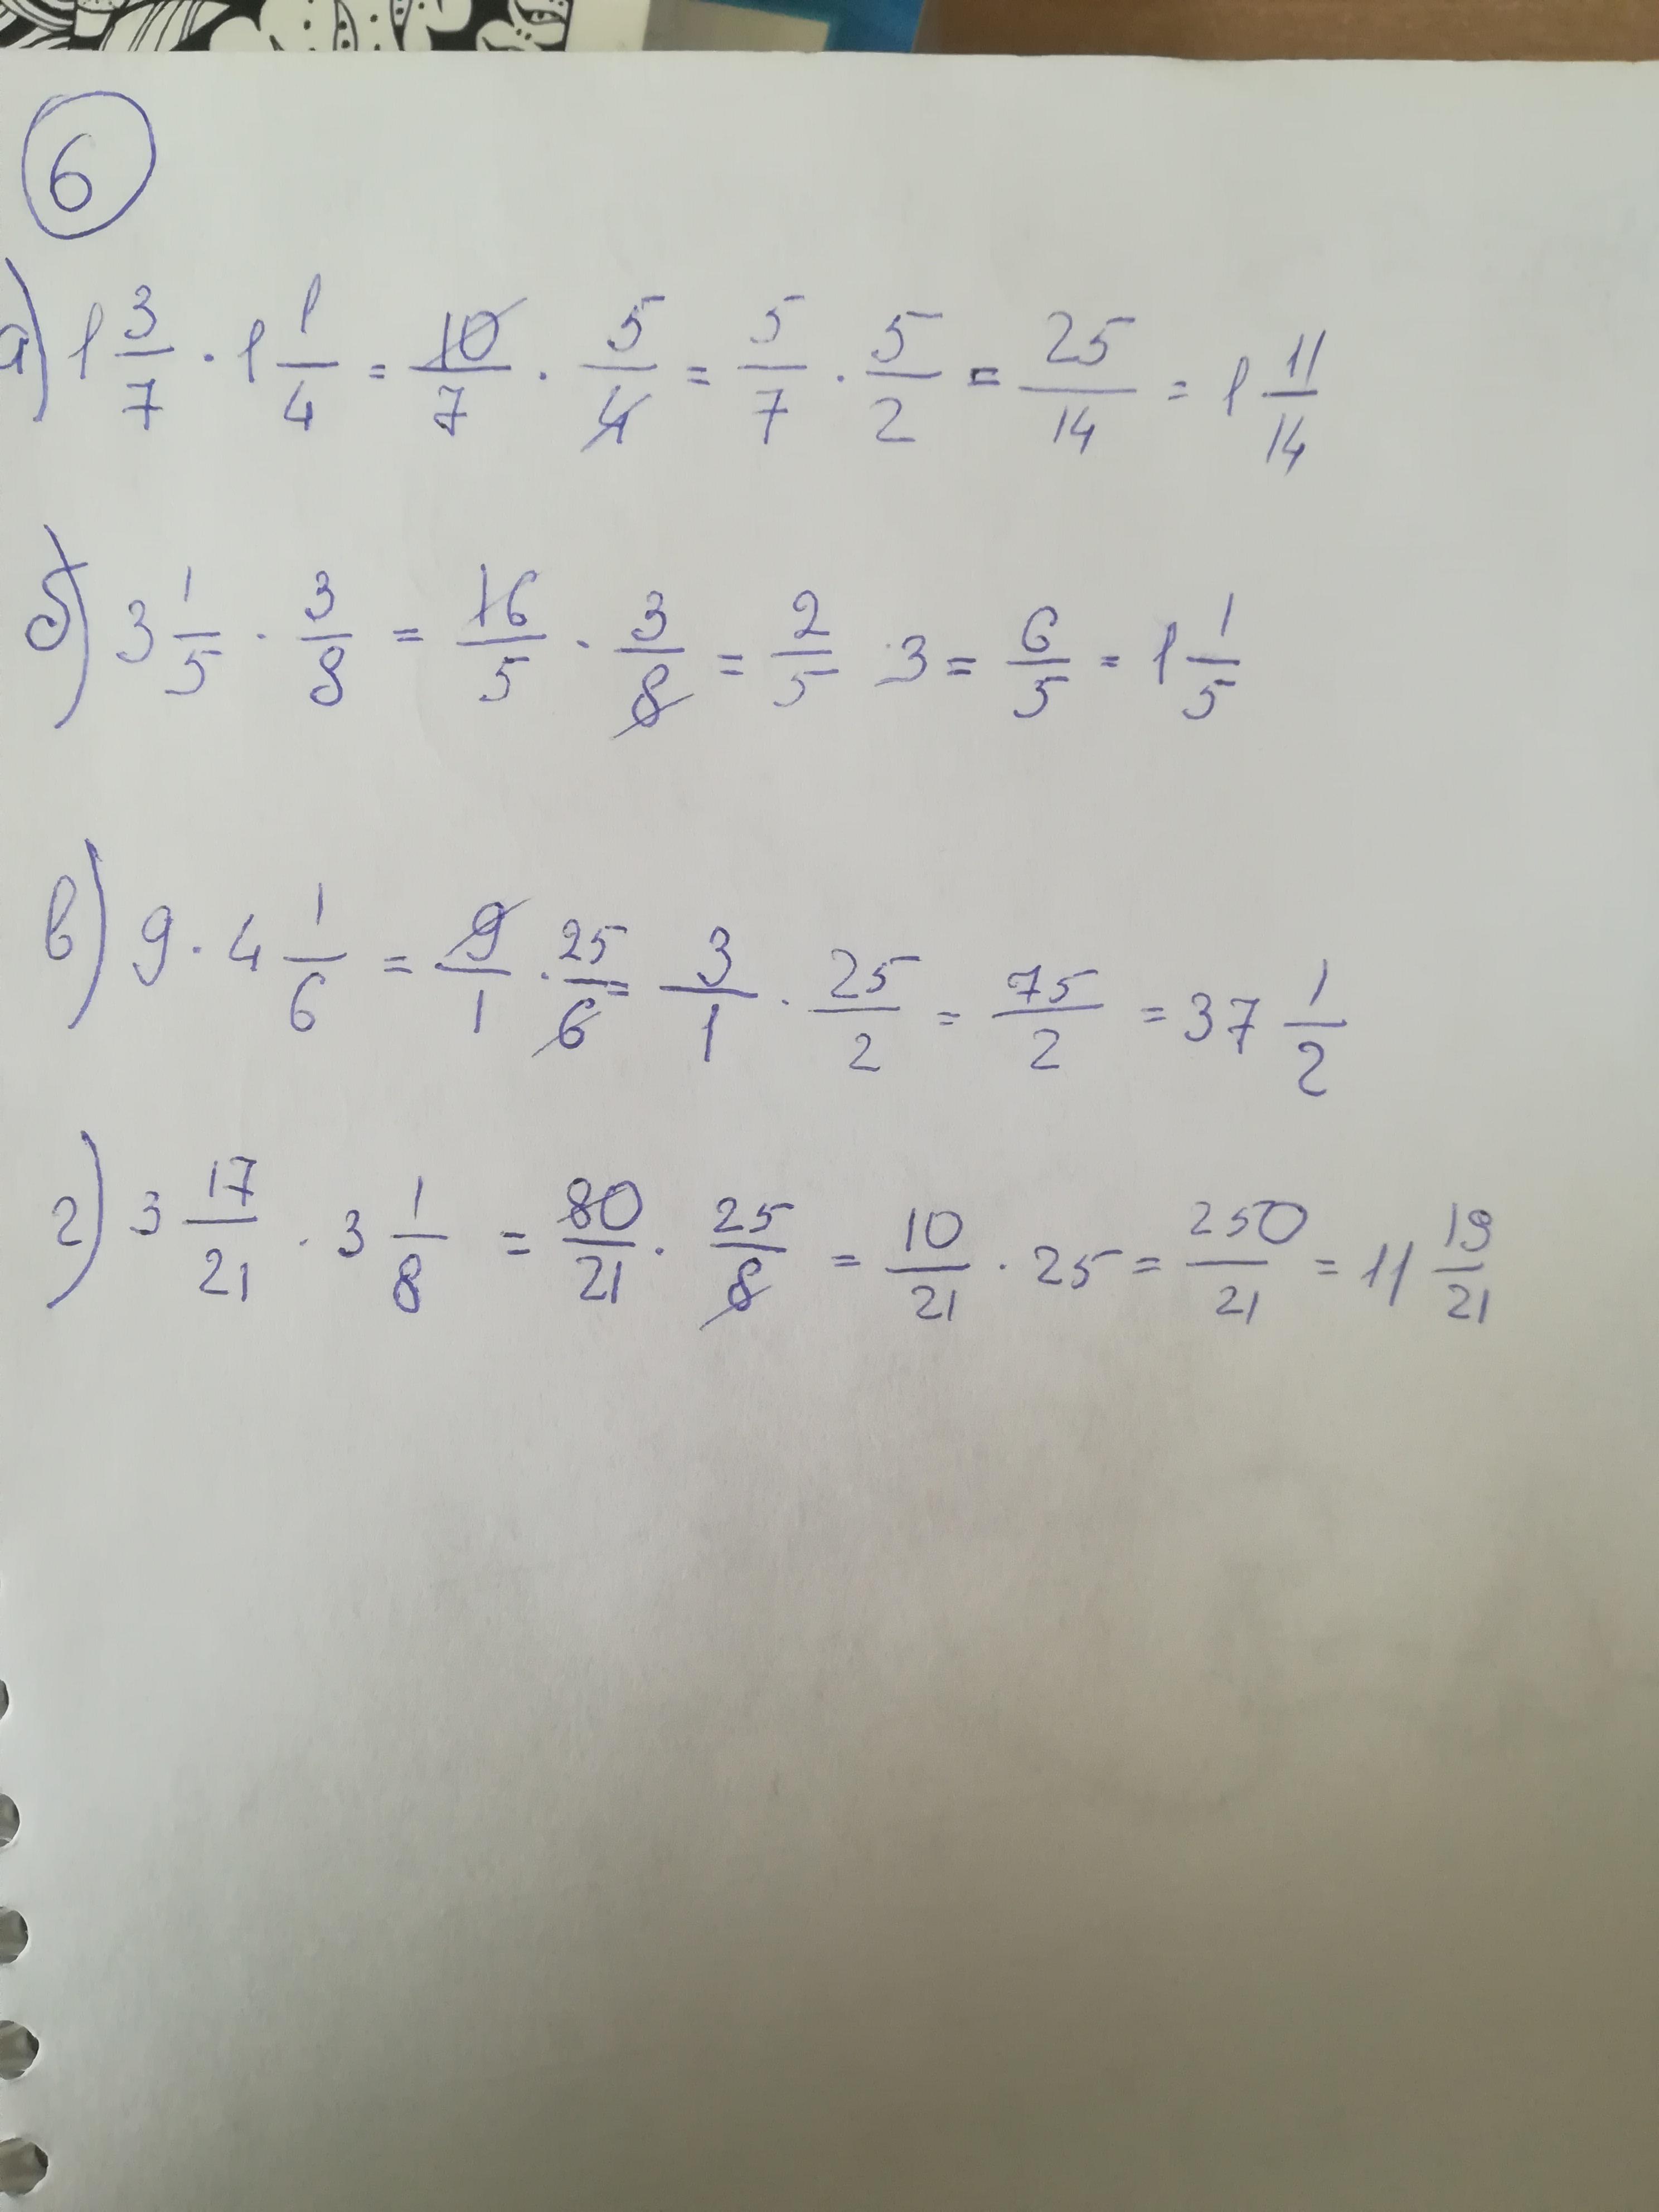 6
а) 1 3/7 · 1 1/4 = 10/7 · 5/4 = 5/7 · 5/2 = 25/14 = 1 11/14
б) 3 1/5 · 3/8 = 16/5 · 3/8 = 2/5 · 3 = 6/5 = 1 1/5
в) 9 · 4 1/6 = 9/1 · 25/6 = 3/1 · 25/2 = 75/2 = 37 1/2
г) 3 17/21 · 3 1/8 = 80/21 · 25/8 = 10/21 · 25 = 250/21 = 11 19/21